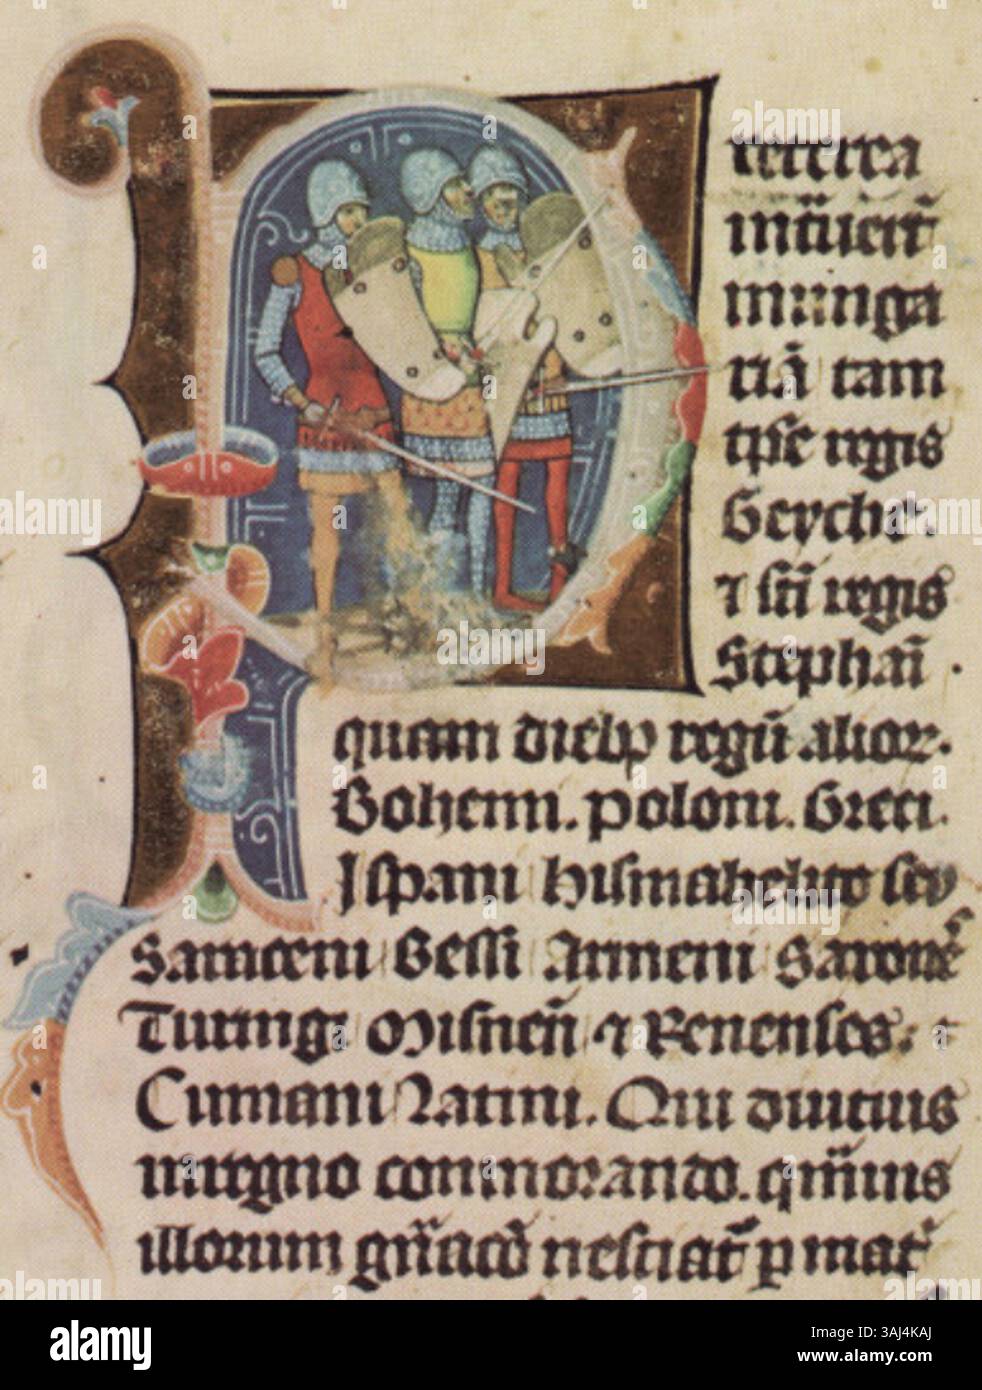 reterea
int̄uert̄
in unga
riā tam
tp̄e regis
Geyche.
⁊ sc̄i regis
Stephaī .
quam dieb₉ regū alior.
Bohemi. poloni. Greci.
Ispani hismahelite seu
Saraceni Bessi Armeni Saxoēs
Turingi Misnen̄ ⁊ Renenses:
Cumani Latini. Qui diutius
in regno commorando. qm̄uis
illorum gn̄acō nesciat̄ p mat̄
alamy
Image ID: 2AJ4KAJ
www.alamy.com